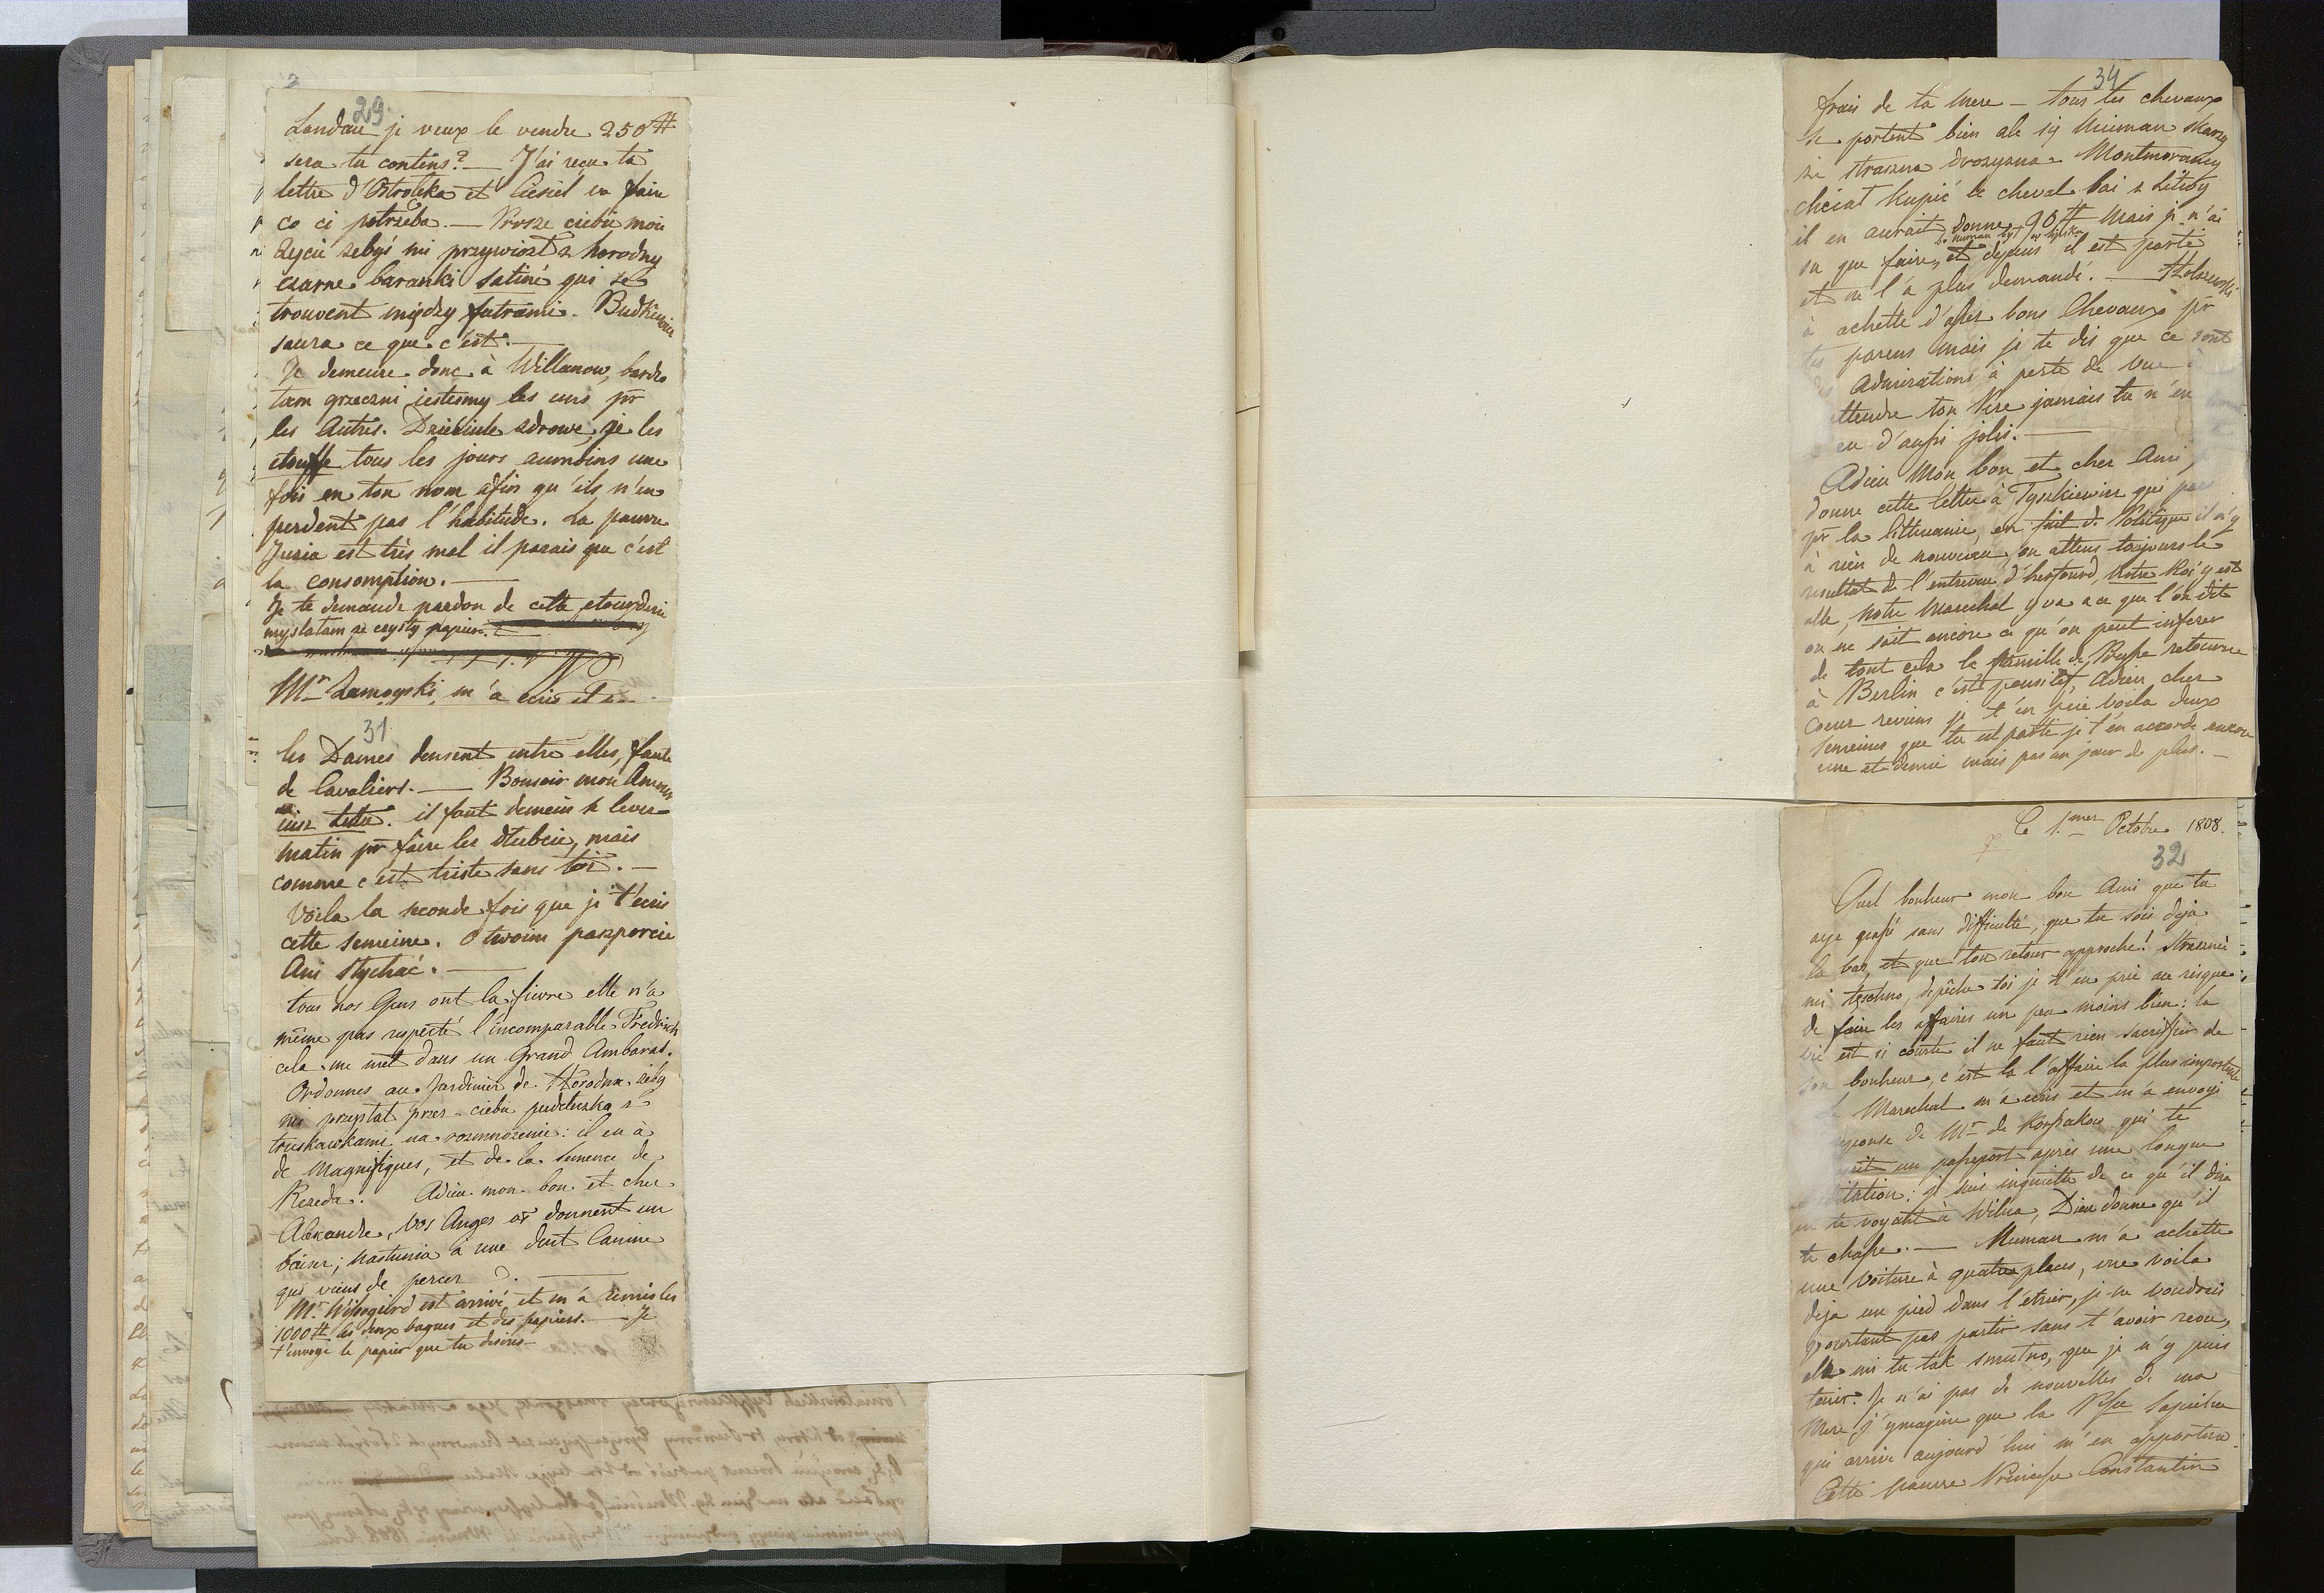 29.
Landau je veux le vendre 250 #
sera tu contens? — J'ai reçu ta
lettre d'Ostrolęka et Ciesiel va faire
co ci potrzeba. — Proszę ciebie moie
życie żebyś mi przywiozł z horodny
czarne baranki satiné qui se
trouvent między futrami. Budkiewicz
saura ce que c'est. —
Je demeure donc à Willanow, bardzo
tam grzeczni iestesmy les uns pr
les Autres. Dziecinki zdrowe, je les
etouffe tous les jours aumoins une
fois en ton nom afin qu'ils n'en
perdent pas l'habitude. La pauvre
Juzia est très mal il parais que c'est
la consomption. —
Je te demande pardon de cette etourderie
myslałam że czysty papier.
Mr Zamoyski m'a ecris et
31
les Dames densent entre elles, faute
de Cavaliers. — Bonsoir mon Amour
il faut demain se lever
matin pr faire les
comme c'est triste sans toi. —
Voila la seconde fois que je t'ecris
cette semeine. O twoim paszporcie
Ani słychać. —
tous nos Gens ont la fievre elle n'a
même pas respecté l'incomparable Fredrich
cela me met dans un Grand Ambaras.
Ordonnes au Jardinier de Horodna żeby
mi przysłał przez ciebie pudełuszka z
truskawkami na rozmnożenie: il en à
de Magnifiques, et de la semence de
Rezeda. Adieu mon bon et cher
Alexandre, vos Anges donnent un
baiser; Nastunia à une dent Canine
qui viens de percer. —
Mr. est arrivé et m'a remis les
1000 # les deux bagues et des papiers. — Je
t'envoye le papier que tu desires —
34
frais de ta Mere — tous tes chevaux
se portent bien ale się Muman skarzy
że straszna drożyzna. Montmorancy
chciał kupić le cheval bai z Litwy
il en aurait donne 90 # Mais je n'ai
su que faire, et depuis il est partie
et ne l'a plus demandé. —
à achetté d'assez bons Chevaux pr
tes parens mais je te dis que ce sont
des Admirations à perte de vue à
ettendre ton Pere jamais tu n'en
eu d'aussi jolis. —
Adieu Mon bon et cher Ami, je
donne cette lettre à Tyszkiewicz qui
pr la Littuanie, en fait de Politique il n'y
à rien de nouveau, on attens toujours le
resultat de l'entrevue d'herfourd, notre Roi y est
alle, notre Marechal y va a ce que l'on dit
on ne sait encore ce qu'on peut inferer
de tout cela la famille de Prusse retourne
à Berlin c'est positif, Adieu cher
Coeur reviens je t'en prie voila deux
semeines que tu est partit je t'en accorde encore
une et demie mais pas un jour de plus. —
Le 1.mer Octobre 1808.
32
Quel bonheur mon bon Ami que tu
aye passé sans difficulté, que tu sois deja
la bas, et que ton retour approche! Strasznie
mi teschno, depêche toi je t'en prie au risque
de faire les affaires un peu moins bien: la
vie est si courte il ne faut rien sacriffier de
son bonheur, c'est la l'affaire la plus importente
Le Marechal m'a ecris et m'a envoyé
reponse de Mr de Korsakow qui te
un passeport après une longue
; je suis inquiette de ce qu'il dira
en te voyant à Wilna, Dieu donne qu'il
te chasse. — Muman m'a achetté
une Voiture à quatre places, me voila
deja un pied dans l'etrier, je ne voudrais
pourtant pas partir sans t'avoir revu,
ale mi tu tak smutno, que je n'y puis
tenir. Je n'ai pas de nouvelles de ma
Mere j'ymagine que la Psse Sapieha
qui arrive aujourd'hui m'en apportera.
Cette pauvre Princesse Constantin